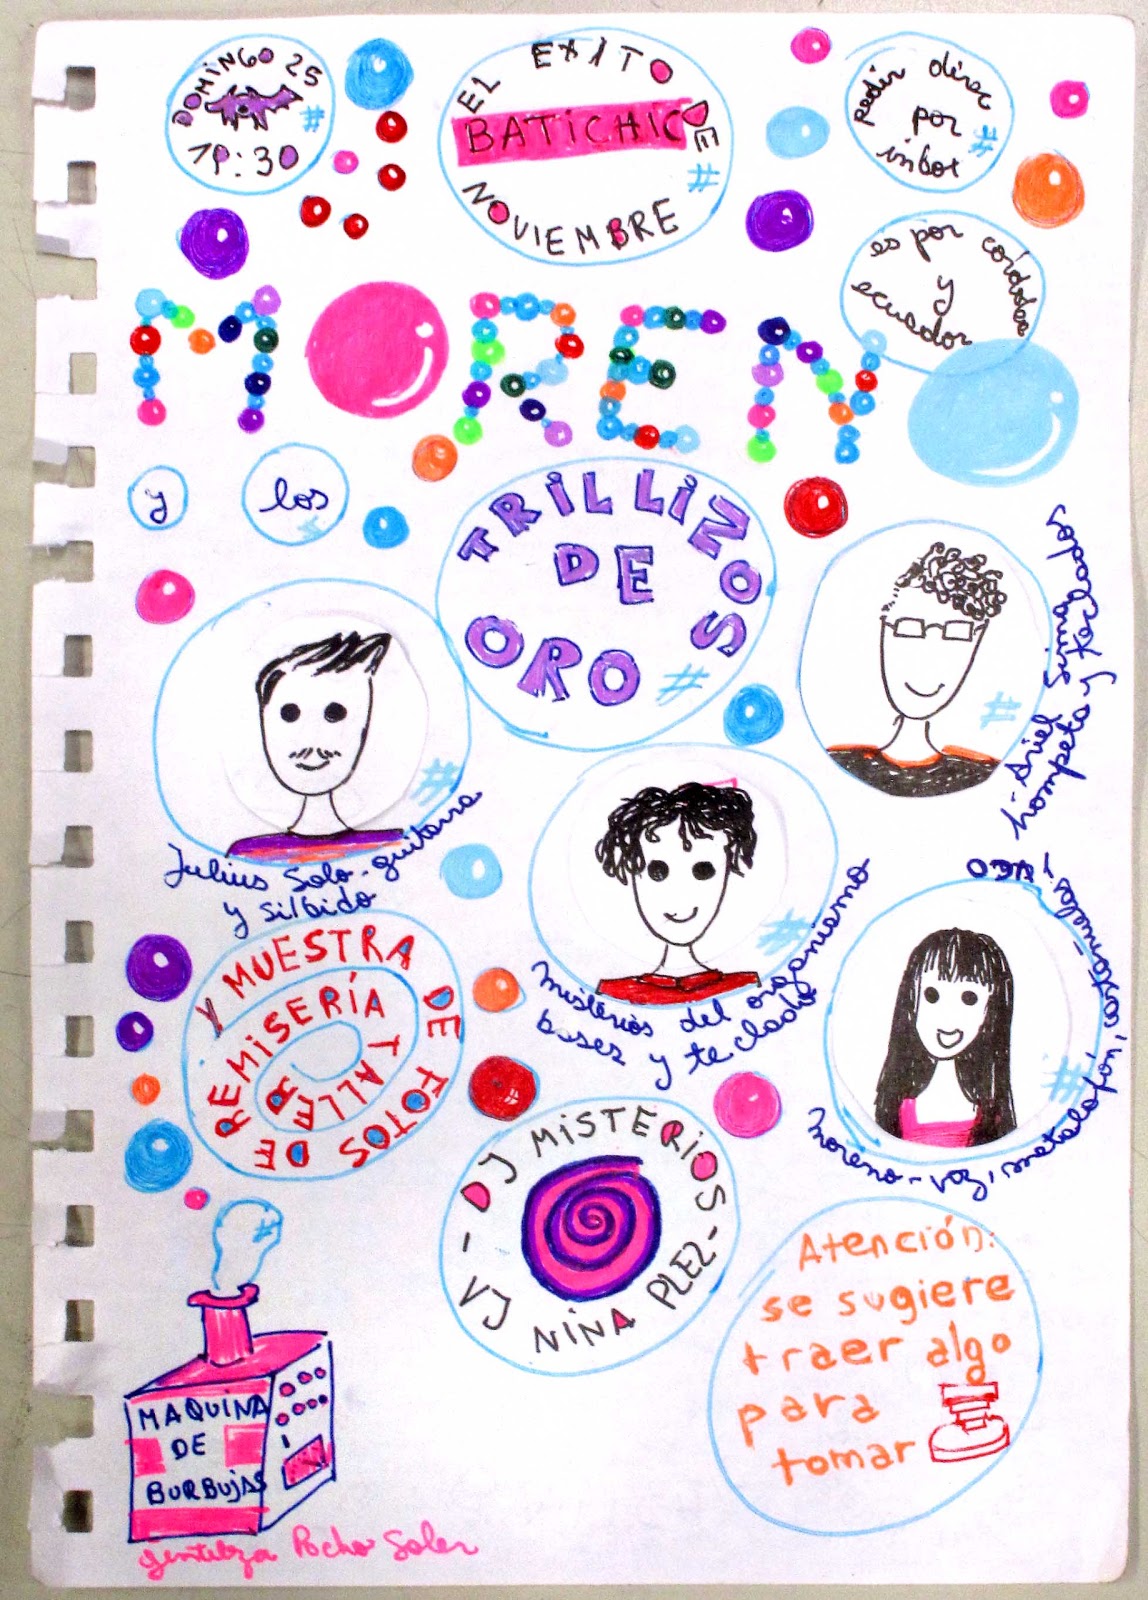 DOMINGO 25
19:30
EL EXITO DE
BATICHICO
NOVIEMBRE
pedir direc
por
inbox
es por córdoba
y
ecuador
MORENO
y los
TRILLIZOS
DE
ORO
Julius Solo - guitarra
y silbido
Misterios del organismo
bases y teclado
1- Ariel Sima,
trompeta y teclados
Moreno - voz, metalofón, castañuelas y
Y MUESTRA DE FOTOS DE REMISERÍA TALLER
DJ MISTERIOS -
VJ NINA PLEZ -
Atención:
se sugiere
traer algo
para
tomar
MAQUINA
DE
BURBUJAS
gentileza Pocho Soler